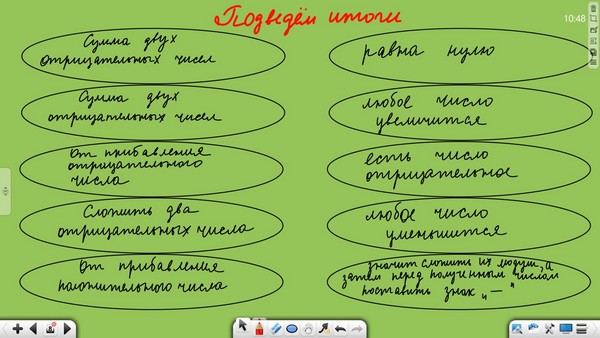 Подведём итоги
10:48
Сумма двух
отрицательных чисел
равна нулю
Сумма двух
отрицательных чисел
любое число
увеличится
От прибавления
отрицательного
числа
есть число
отрицательное
Сложить два
отрицательных числа
любое число
уменьшится
От прибавления
положительного числа
значит сложить их модули, а
затем перед полученным числом
поставить знак „—"